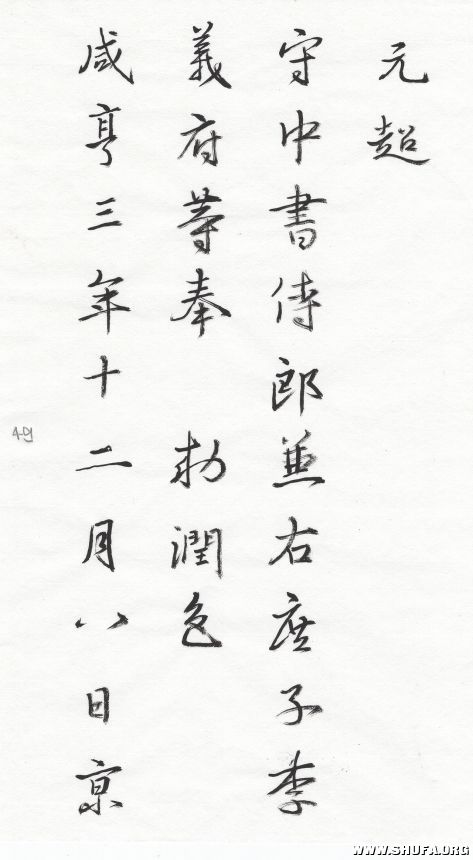 元超
守中書侍郎兼右庶子李
義府等奉 勅潤色
咸亨三年十二月八日京
49
WWW.SHUFA.ORG